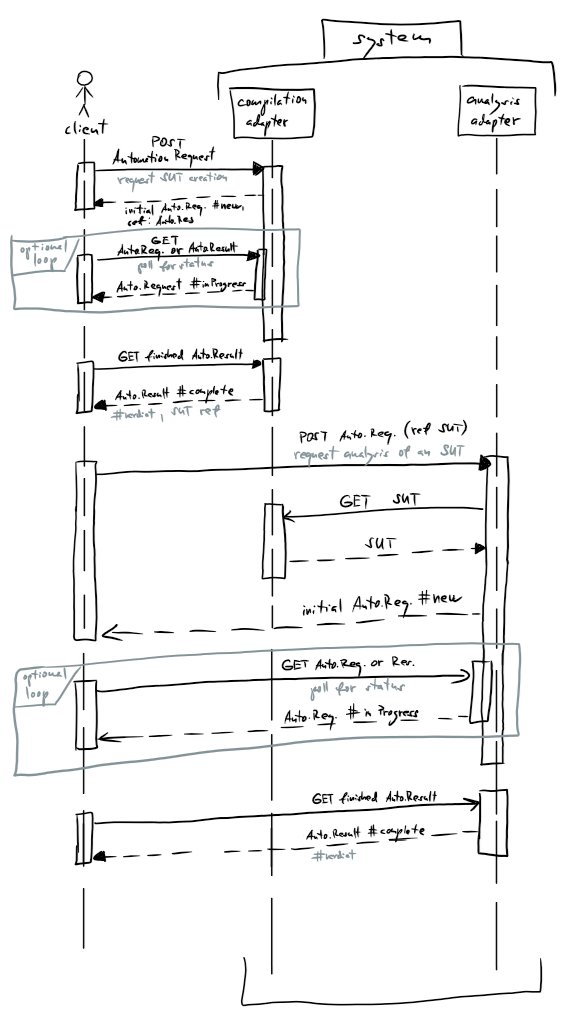 system
client
compilation
adapter
analysis
adapter
POST
Automation Request
request SUT creation
initial Auto.Req. #new,
ref: Auto.Res
optional
loop
GET
AutoReq. or AutoResult
poll for status
Auto.Request #inProgress
GET finished Auto.Result
Auto.Result #complete
#verdict, SUT ref
POST Auto.Req. (ref SUT)
request analysis of an SUT
GET SUT
SUT
initial Auto.Req. #new
optional
loop
GET Auto.Req. or Res.
poll for status
Auto.Req. #in Progress
GET finished Auto.Result
Auto.Result #complete
#verdict